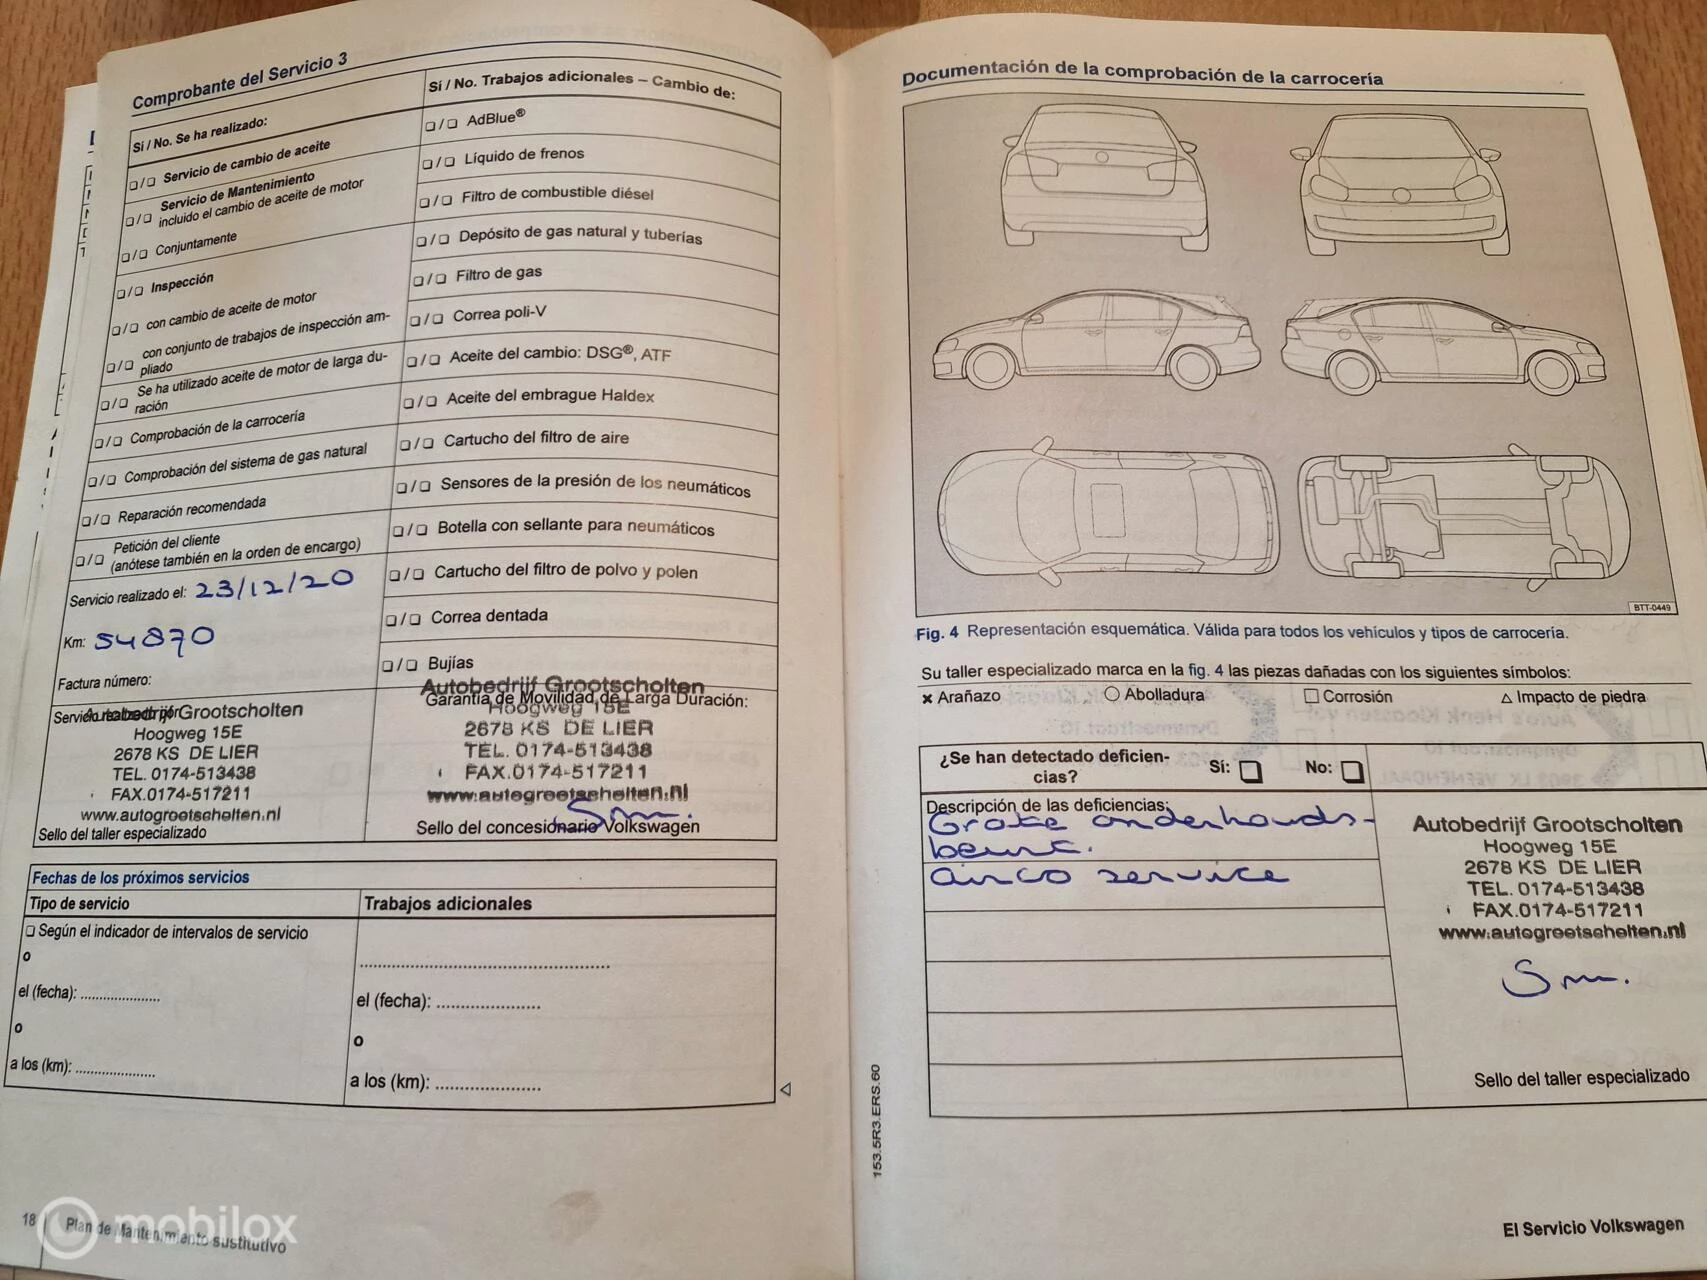 Comprobante del Servicio 3
Sí / No. Se ha realizado:
❏/❏ Servicio de cambio de aceite
❏/❏ Servicio de Mantenimiento
incluido el cambio de aceite de motor
❏/❏ Conjuntamente
❏/❏ Inspección
❏/❏ con cambio de aceite de motor
❏/❏ con conjunto de trabajos de inspección am-
pliado
❏/❏ Se ha utilizado aceite de motor de larga du-
ración
❏/❏ Comprobación de la carrocería
❏/❏ Comprobación del sistema de gas natural
❏/❏ Reparación recomendada
❏/❏ Petición del cliente
(anótese también en la orden de encargo)
Servicio realizado el: 23/12/20
Km: 54870
Factura número:
Servicio realizado por
Autobedrijf Grootscholten
Hoogweg 15E
2678 KS DE LIER
TEL. 0174-513438
FAX.0174-517211
www.autogrootscholten.nl
Sello del taller especializado
Sí / No. Trabajos adicionales – Cambio de:
❏/❏ AdBlue®
❏/❏ Líquido de frenos
❏/❏ Filtro de combustible diésel
❏/❏ Depósito de gas natural y tuberías
❏/❏ Filtro de gas
❏/❏ Correa poli-V
❏/❏ Aceite del cambio: DSG®, ATF
❏/❏ Aceite del embrague Haldex
❏/❏ Cartucho del filtro de aire
❏/❏ Sensores de la presión de los neumáticos
❏/❏ Botella con sellante para neumáticos
❏/❏ Cartucho del filtro de polvo y polen
❏/❏ Correa dentada
❏/❏ Bujías
Autobedrijf Grootscholten
Garantía de Movilidad de Larga Duración:
Hoogweg 15E
2678 KS DE LIER
TEL. 0174-513438
FAX.0174-517211
www.autogrootscholten.nl
Sello del concesionario Volkswagen
Fechas de los próximos servicios
Tipo de servicio
❏ Según el indicador de intervalos de servicio
o
el (fecha): ....................
o
a los (km): ....................
Trabajos adicionales
el (fecha): ....................
o
a los (km): ....................
18
Plan de Mantenimiento sustitutivo
mobilox
Documentación de la comprobación de la carrocería
BTT-0449
Fig. 4 Representación esquemática. Válida para todos los vehículos y tipos de carrocería.
Su taller especializado marca en la fig. 4 las piezas dañadas con los siguientes símbolos:
× Arañazo ○ Abolladura □ Corrosión △ Impacto de piedra
¿Se han detectado deficien-
cias? Sí: ❏ No: ❏
Descripción de las deficiencias:
Grote onderhouds-
beurt.
airco service
Autobedrijf Grootscholten
Hoogweg 15E
2678 KS DE LIER
TEL. 0174-513438
FAX.0174-517211
www.autogrootscholten.nl
Sello del taller especializado
153.5R3.ERS.60
El Servicio Volkswagen